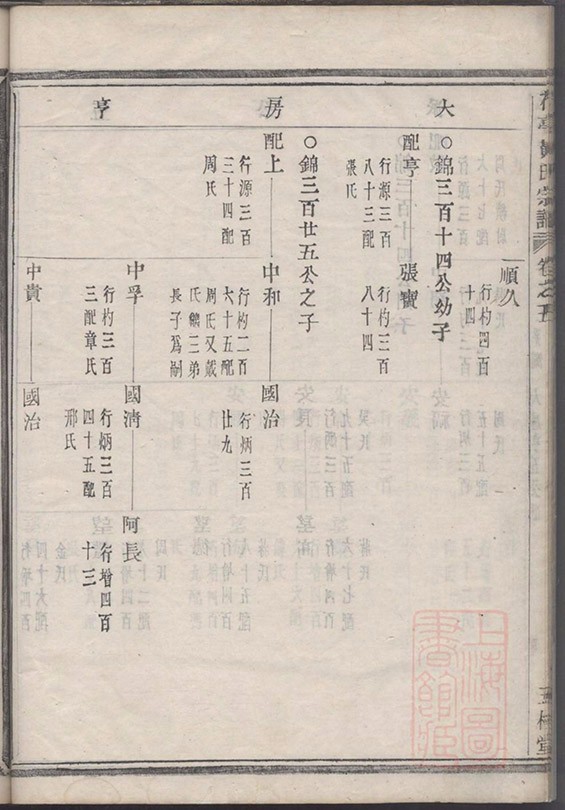 宗譜
卷之五
大 房 亨
順久
行杓四百
十四
○錦三百十四公幼子
配亭 張寶
行源三百
八十三配
張氏
行杓三百
八十四
○錦三百廿五公之子
配上 中和 國治
行源三百
三十四配
周氏
行杓二百
六十五配
周氏又戴
氏鱗三弟
長子為嗣
行炳三百
廿九
中孚 國濟 阿長
行杓三百
三配章氏
行炳三百
四十五配
邢氏
行增四百
十三
中貴 國治
上海圖
書館藏